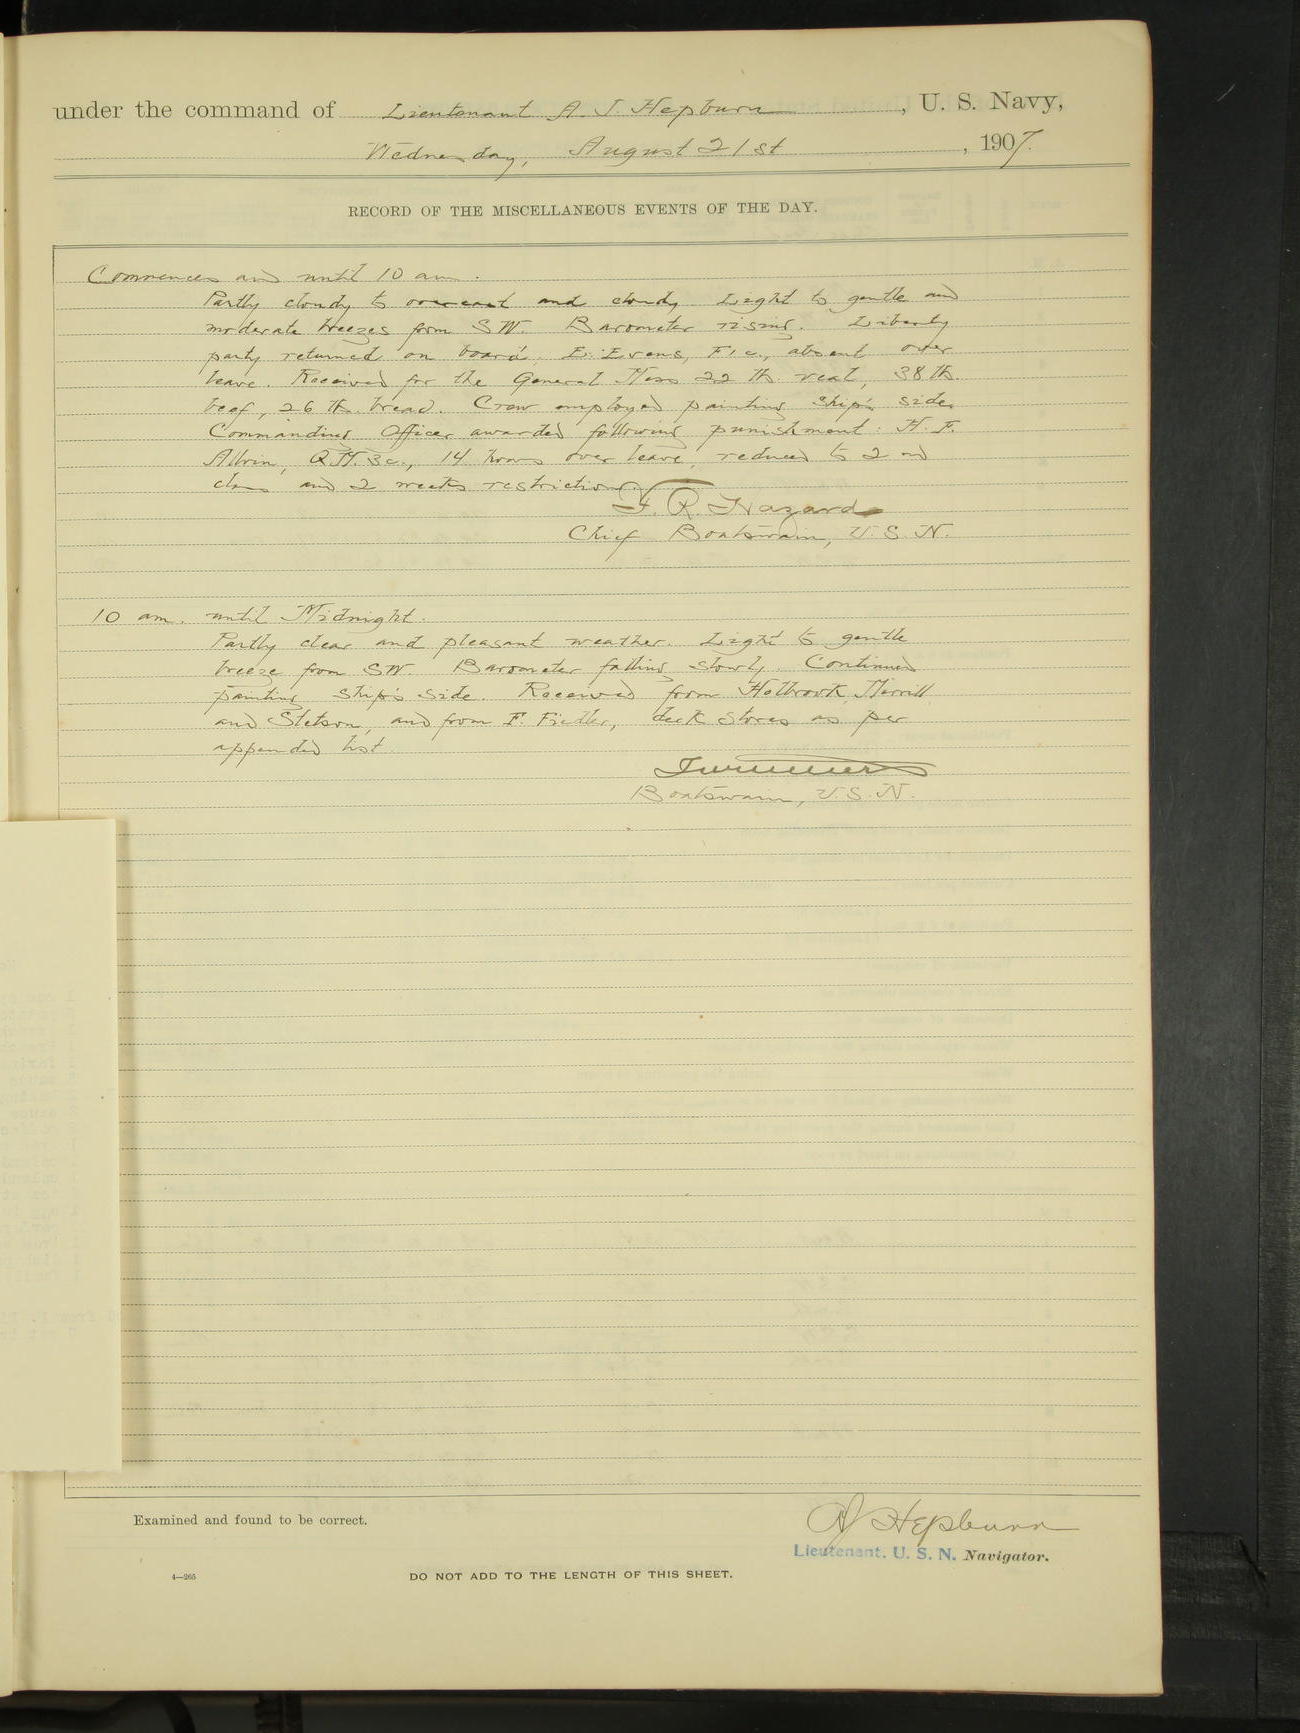 under the command of Lieutenant A. J. Hepburn, U. S. Navy,
Wednesday, August 21st, 1907.
RECORD OF THE MISCELLANEOUS EVENTS OF THE DAY.
Commences and until 10 am.
Partly cloudy to overcast and cloudy. Light to gentle and
moderate breezes from SW. Barometer rising. Liberty
party returned on board. E. Evans, F1c., absent over
leave. Received for the General Mess 22 lb veal, 38 lb.
beef, 26 lb. bread. Crew employed painting ship's side.
Commanding Officer awarded following punishment: H. F.
Q.M.3c., 14 hours over leave, reduced to 2nd
class and 2 weeks restriction.
F. R. Hazard
Chief Boatswain, U.S.N.
10 am. until Midnight.
Partly clear and pleasant weather. Light to gentle
breeze from SW. Barometer falling slowly. Continued
painting ship's side. Received from Holbrook, Merrill
and Stetson, and from F. deck stores as per
appended list.
Boatswain, U.S.N.
Examined and found to be correct.
AJ Hepburn
Lieutenant. U. S. N. Navigator.
4—265
DO NOT ADD TO THE LENGTH OF THIS SHEET.